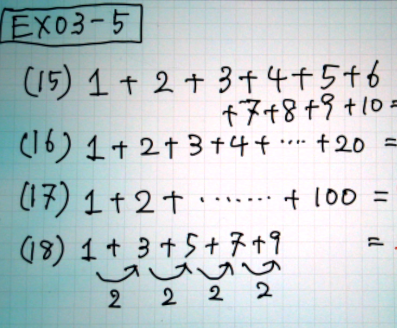 EX03-5
(15) 1 + 2 + 3 + 4 + 5 + 6
+7+8+9+10=
(16) 1 + 2 + 3 + 4 + ···· + 20 =
(17) 1 + 2 + ······· + 100 =
(18) 1 + 3 + 5 + 7 + 9 =
2 2 2 2